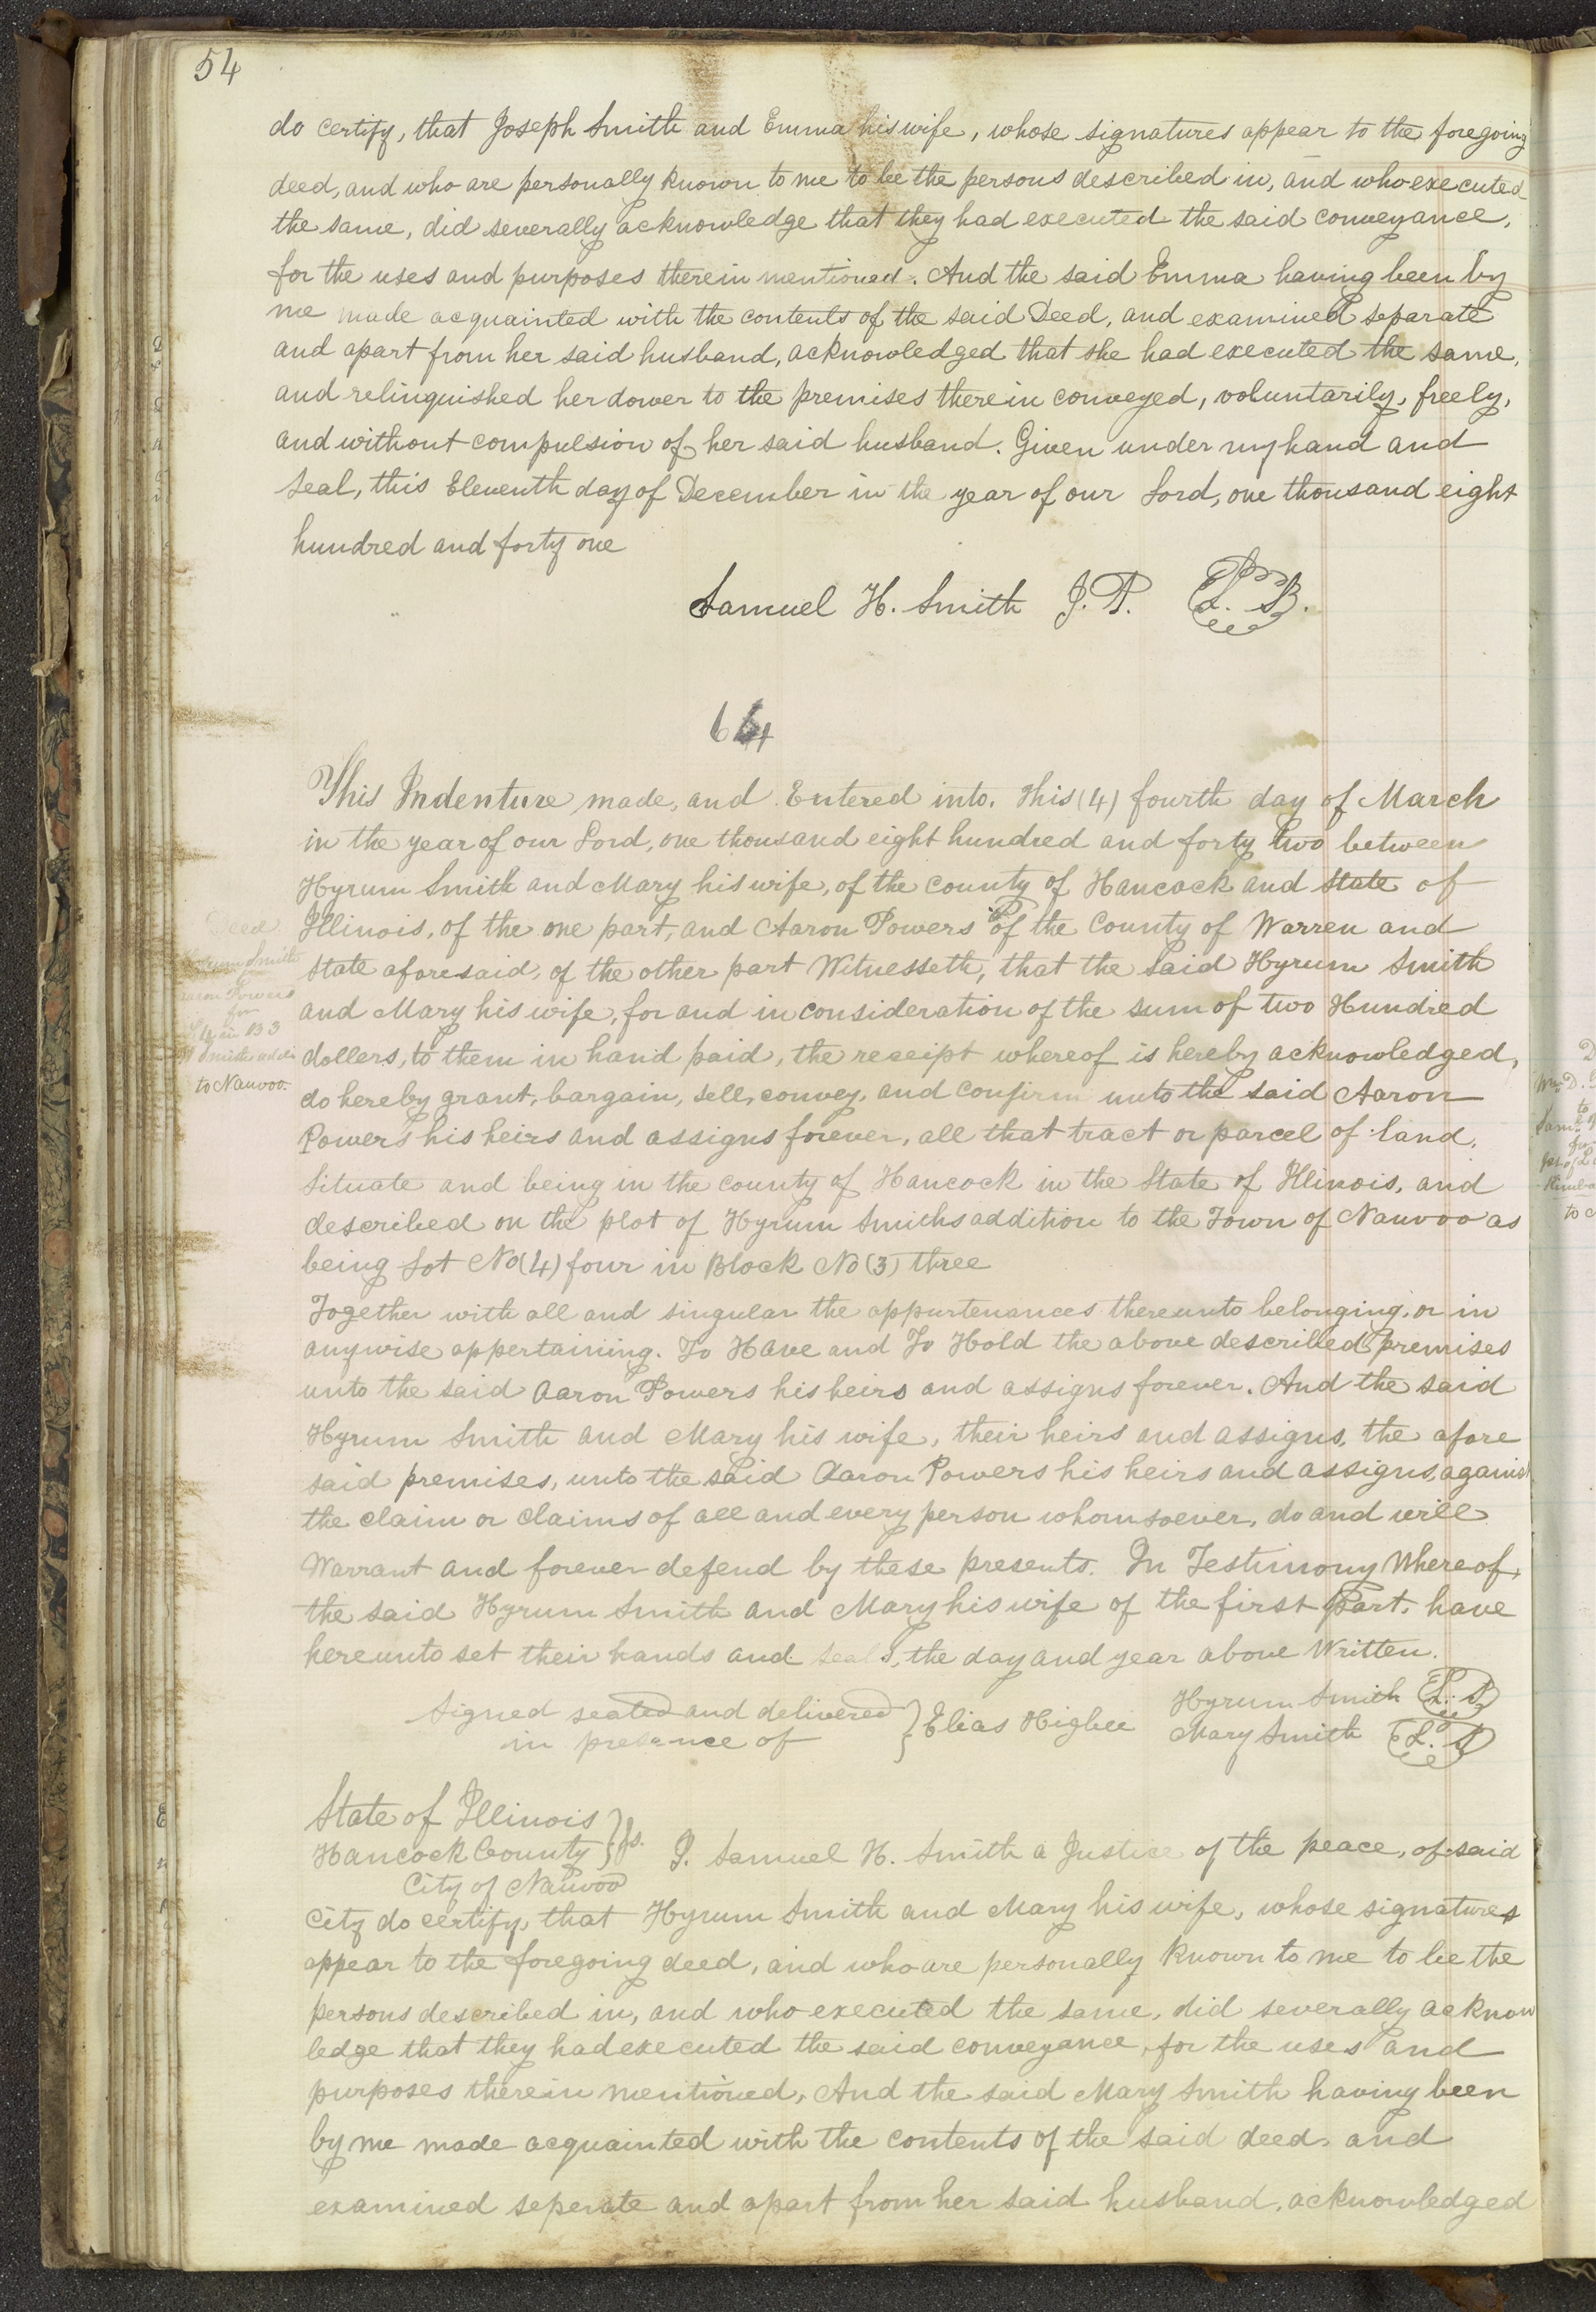 54
do certify, that Joseph Smith and Emma his wife, whose signatures appear to the foregoing
deed, and who are personally known to me to be the persons described in, and who executed
the same, did severally acknowledge that they had executed the said conveyance,
for the uses and purposes therein mentioned. And the said Emma having been by
me made acquainted with the contents of the said Deed, and examined separate
and apart from her said husband, acknowledged that she had executed the same,
and relinquished her dower to the premises therein conveyed, voluntarily, freely,
and without compulsion of her said husband. Given under my hand and
seal, this Eleventh day of December in the year of our Lord, one thousand eight
hundred and forty one
Samuel H. Smith J.P. L.S.
64
This Indenture made, and Entered into. This (4) fourth day of March
in the year of our Lord, one thousand eight hundred and forty two between
Hyrum Smith and Mary his wife, of the county of Hancock and State of
Illinois, of the one part, and Aaron Powers of the County of Warren and
State aforesaid, of the other part Witnesseth, that the said Hyrum Smith
and Mary his wife, for and in consideration of the sum of two Hundred
dollers, to them in hand paid, the receipt whereof is hereby acknowledged,
do hereby grant, bargain, sell, convey, and confirm unto the said Aaron
Powers his heirs and assigns forever, all that tract or parcel of land,
Situate and being in the county of Hancock in the State of Illinois, and
described on the plot of Hyrum Smiths addition to the Town of Nauvoo as
being Lot No (4) four in Block No (3) three
Together with all and singular the appurtenances thereunto belonging, or in
anywise appertaining. To Have and To Hold the above described premises
unto the said Aaron Powers his heirs and assigns forever. And the said
Hyrum Smith and Mary his wife, their heirs and assigns, the afore
said premises, unto the said Aaron Powers his heirs and assigns, against
the claim or claims of all and every person whomsoever, do and will
Warrant and forever defend by these presents. In Testimony Whereof,
the said Hyrum Smith and Mary his wife of the first Part, have
hereunto set their hands and seals, the day and year above Written.
Signed sealed and delivered
in presence of } Elias Higbee
Hyrum Smith L.S.
Mary Smith L.S.
Deed
Hyrum Smith
Aaron Powers
for
L 4 in B 3
H Smiths addi
to Nauvoo.
State of Illinois
Hancock County } ss.
City of Nauvoo
I. Samuel H. Smith a Justice of the peace, of said
City do certify, that Hyrum Smith and Mary his wife, whose signatures
appear to the foregoing deed, and who are personally known to me to be the
persons described in, and who executed the same, did severally acknow
ledge that they had executed the said conveyance, for the uses and
purposes therein mentioned, And the said Mary Smith having been
by me made acquainted with the contents of the said deed, and
examined seperate and apart from her said husband, acknowledged